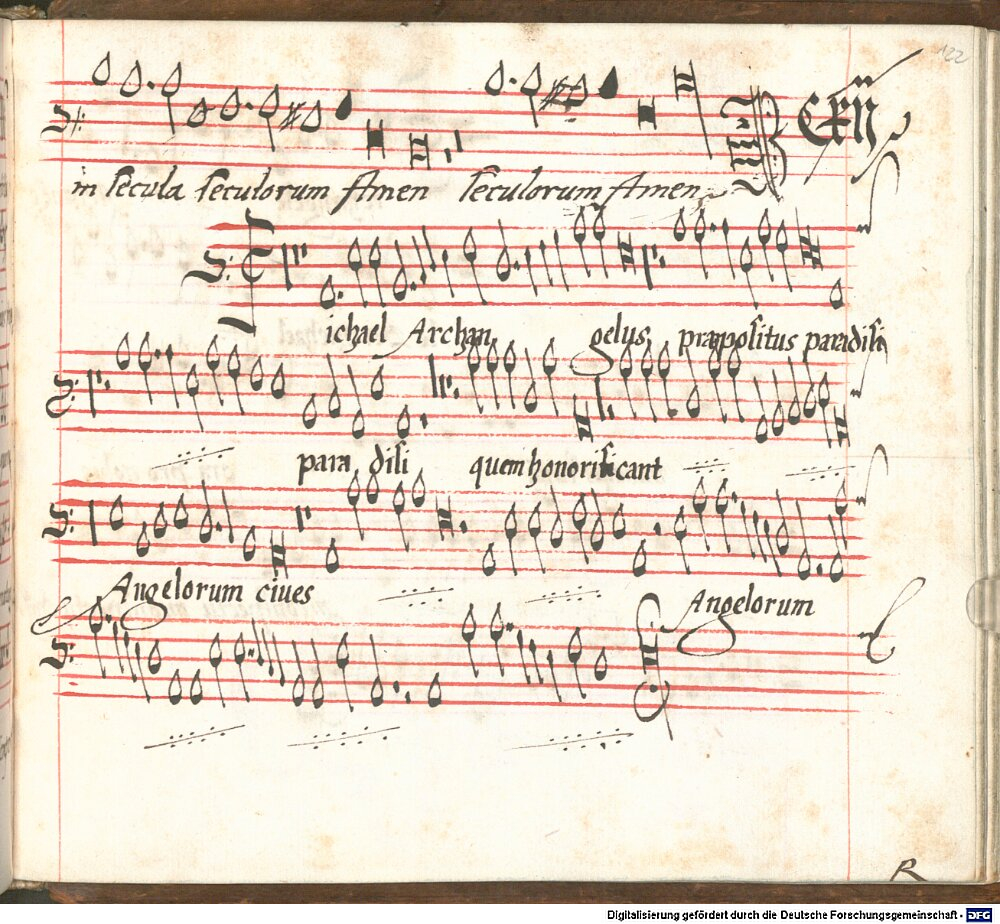 122
in secula seculorum Amen seculorum Amen
ichael Archan gelus præpositus paradisi
para disi quem honorificant
Angelorum ciues Angelorum
R
Digitalisierung gefördert durch die Deutsche Forschungsgemeinschaft - DFG